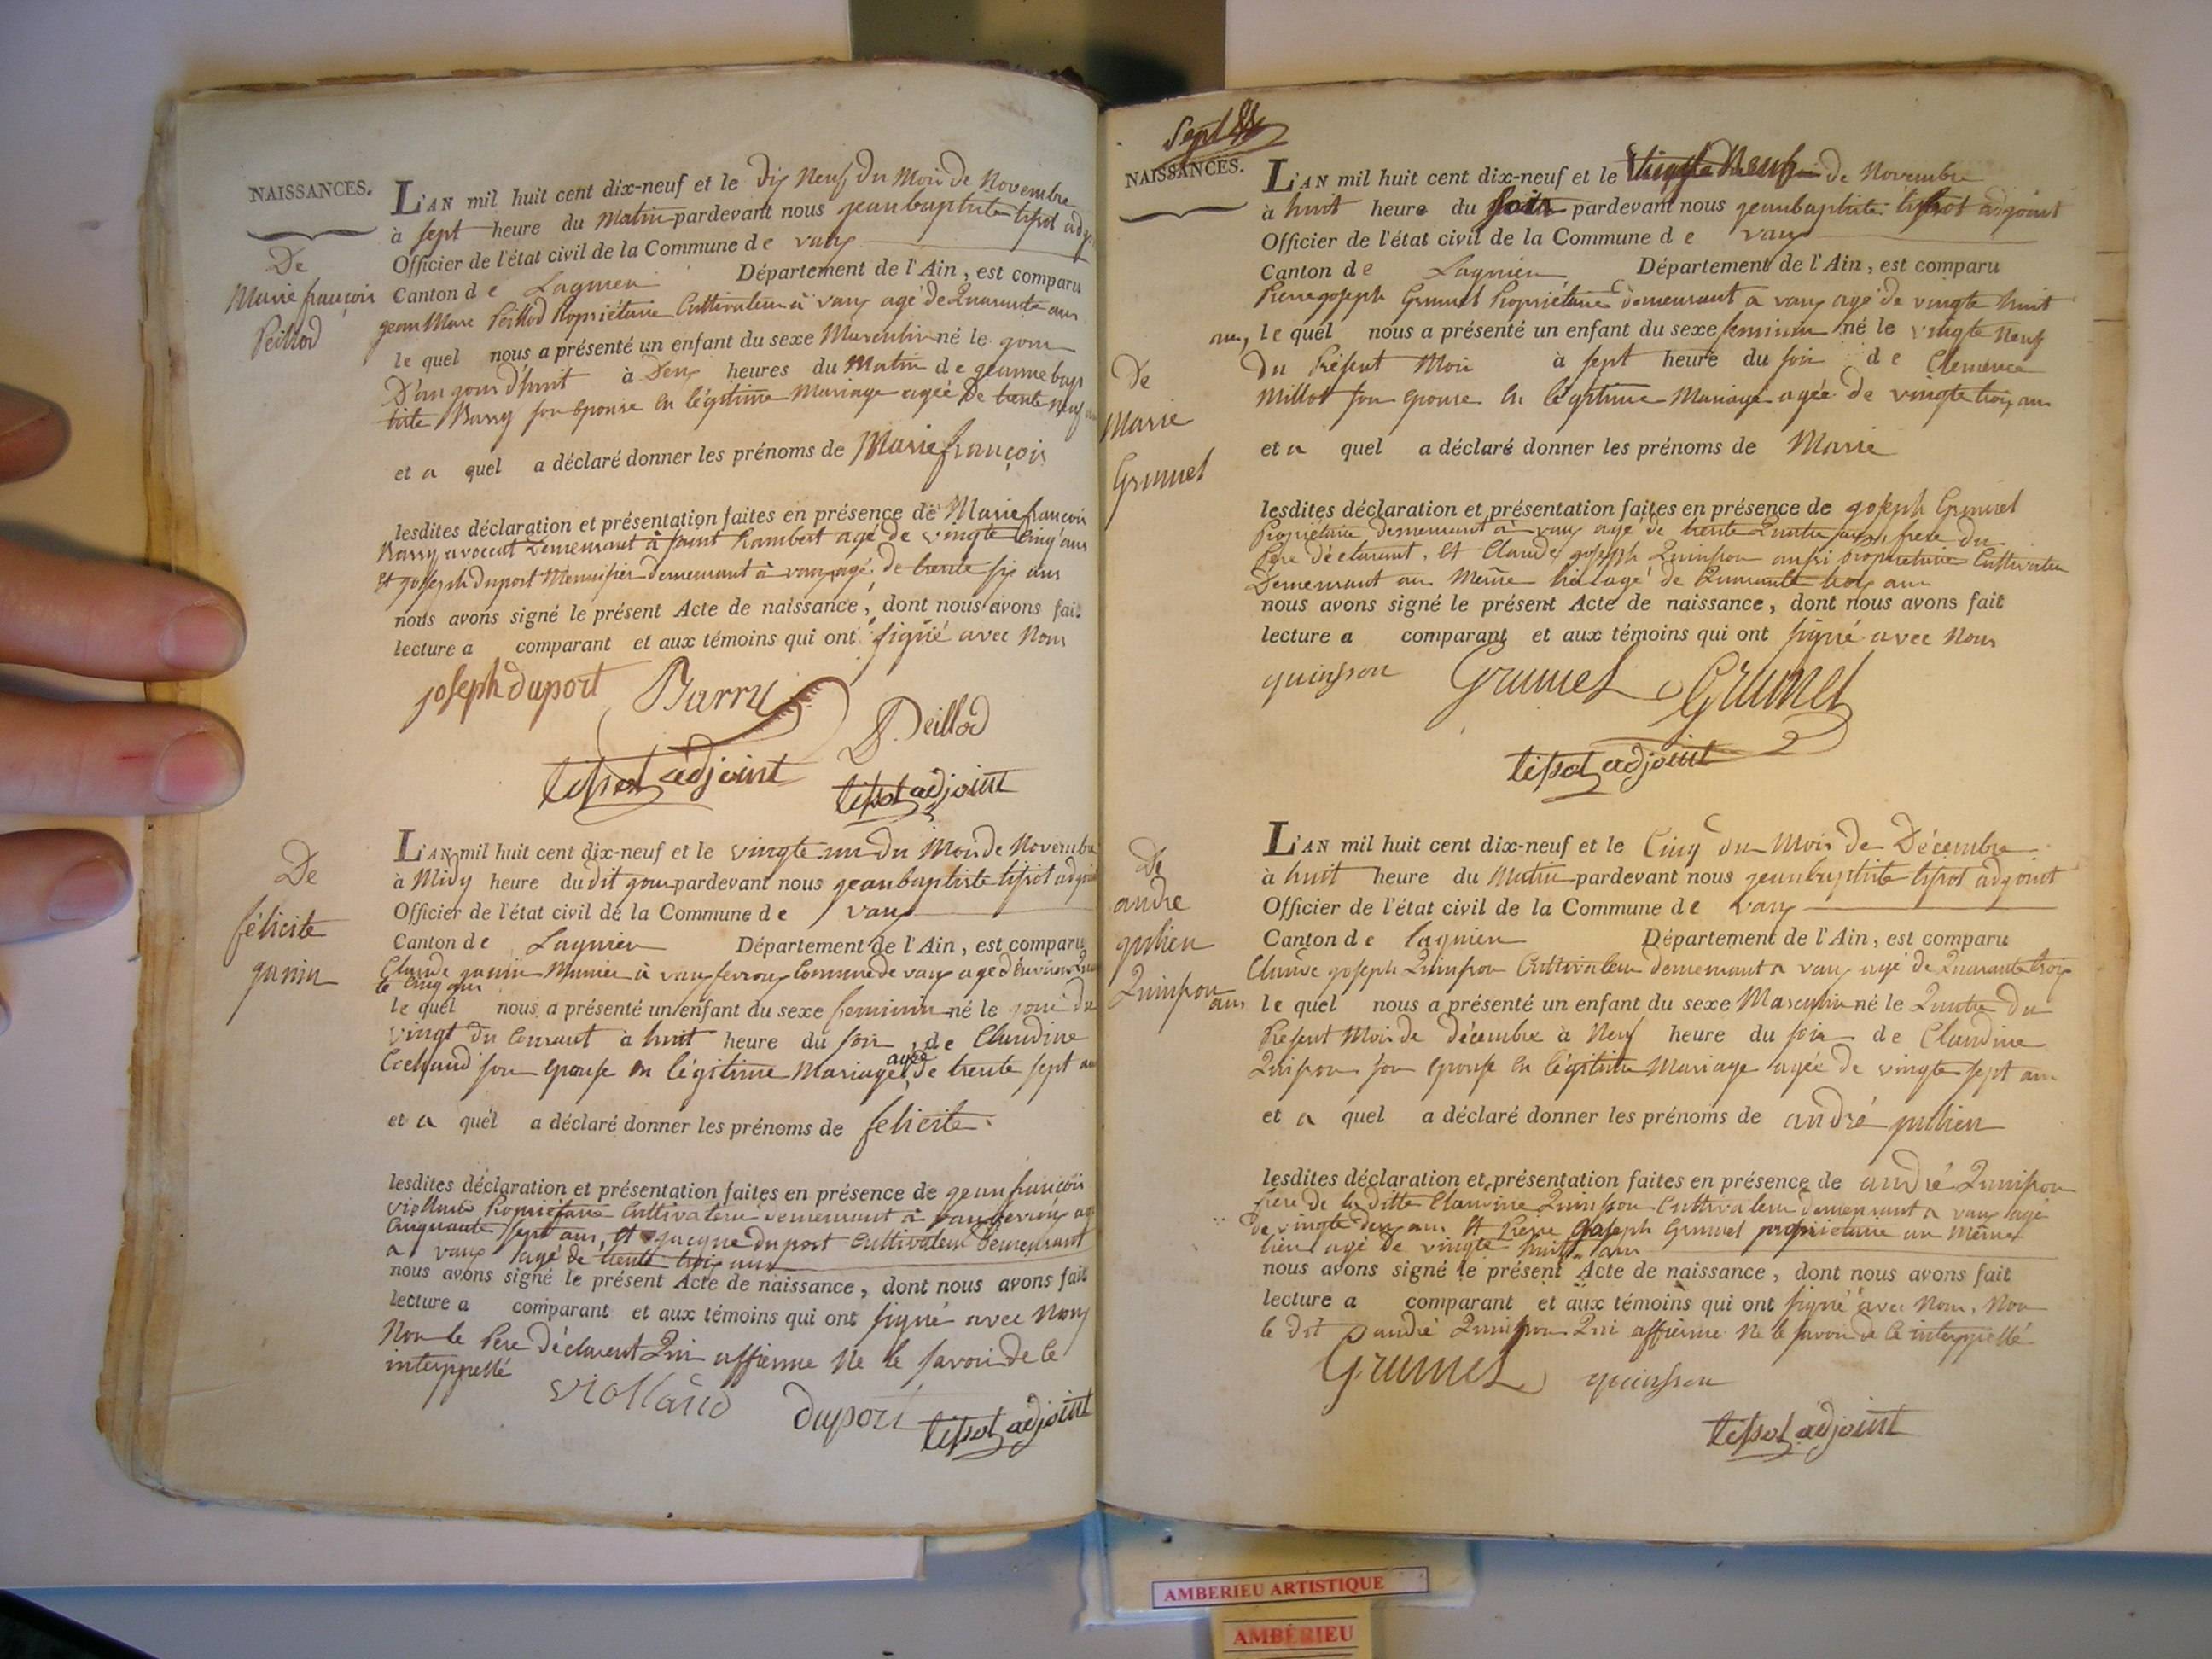 NAISSANCES.
De
Marie françois
Peillod
L'AN mil huit cent dix-neuf et le Dix Neuf du Mois de Novembre
à sept heure du Matin pardevant nous jean baptiste tissot adj
Officier de l'état civil de la Commune de vaux
Canton de Lagnieu Département de l'Ain, est comparu
jean Marc Peillod Propriétaire Cultivateur à vaux agé de Quarante ans
le quel nous a présenté un enfant du sexe Masculin né le jour
D'aujourd'huit à Deux heures du Matin de jeanne bap
tiste Barry son épouse en légitime Mariage agée de trente neuf
et a quel a déclaré donner les prénoms de Marie françois
lesdites déclaration et présentation faites en présence de Marie françois
Barry avocat Demeurant à saint Rambert agé de vingte cinq ans
et joseph duport Menuisier demeurant à vaux agé de trente six ans
nous avons signé le présent Acte de naissance, dont nous avons fait
lecture a comparant et aux témoins qui ont signé avec Nous
joseph duport Barry
Peillod
tissot adjoint tissot adjoint
De
félicité
janin
L'AN mil huit cent dix-neuf et le vingte un du Mois de Novembre
à Midy heure du dit jour pardevant nous jean baptiste tissot adjoint
Officier de l'état civil de la Commune de vaux
Canton de Lagnieu Département de l'Ain, est comparu
Claude janin Munier à vaux fevroux Commune de vaux agé d'environ
te cinq ans
le quel nous a présenté un enfant du sexe feminin né le jour du
vingt du Courant à huit heure du soir, de Claudine
son épouse en légitime Mariage agée de trente sept ans
et a quel a déclaré donner les prénoms de félicité
lesdites déclaration et présentation faites en présence de jean françois
violland Propriétaire Cultivateur demeurant à vaux fevroux agé
Cinquante sept ans, et jacque duport Cultivateur Demeurant
a vaux agé de trente trois ans
nous avons signé le présent Acte de naissance, dont nous avons fait
lecture a comparant et aux témoins qui ont signé avec Nous
Non le Pere Déclarent Qui affirme Ne le savoir de ce
interppellé
violland duport tissot adjoint
Sept
NAISSANCES.
De
Marie
Grumet
L'AN mil huit cent dix-neuf et le vingte Neuf de Novembre
à huit heure du soir pardevant nous jean baptiste tissot adjoint
Officier de l'état civil de la Commune de vaux
Canton de Lagnieu Département de l'Ain, est comparu
Pierre joseph Grumet Propriétaire demeurant a vaux agé de vingte huit
ans, le quel nous a présenté un enfant du sexe feminin né le vingte Neuf
du Présent Mois à sept heure du soir de Clemence
Millot son épouse en légitime Mariage agée de vingte trois ans
et a quel a déclaré donner les prénoms de Marie
lesdites déclaration et présentation faites en présence de joseph Grumet
Propriétaire demeurant à vaux agé de trente Quatre ans frere du
Pere déclarant, et Claude joseph Quinson aussi propriétaire Cultivateur
Demeurant au Même lieu agé de Quarante trois ans
nous avons signé le présent Acte de naissance, dont nous avons fait
lecture a comparant et aux témoins qui ont signé avec Nous
quinsson Grumet Grumet
tissot adjoint
De
andre
julien
Quinson
L'AN mil huit cent dix-neuf et le Cinq du Mois de Décembre
à huit heure du Matin pardevant nous jean baptiste tissot adjoint
Officier de l'état civil de la Commune de vaux
Canton de lagnieu Département de l'Ain, est comparu
Claude joseph Quinson Cultivateur demeurant a vaux agé de Quarante trois
ans le quel nous a présenté un enfant du sexe Masculin né le Quatre du
Présent Mois de décembre à Neuf heure du soir de Claudine
Quinson son épouse en légitime Mariage agée de vingte sept ans
et a quel a déclaré donner les prénoms de andré julien
lesdites déclaration et présentation faites en présence de andré Quinson
frere de la ditte Claudine Quinsson Cultivateur demeurant a vaux agé
de vingte deux ans et Pierre joseph Grumet propriétaire au même
lieu agé de vingte huit ans
nous avons signé le présent Acte de naissance, dont nous avons fait
lecture a comparant et aux témoins qui ont signé avec Nous, Non
le Dit andré Quinson Qui affirme Ne le savoir de ce interppellé
Grumet quinsson
tissot adjoint
AMBERIEU ARTISTIQUE
AMBÉRIEU